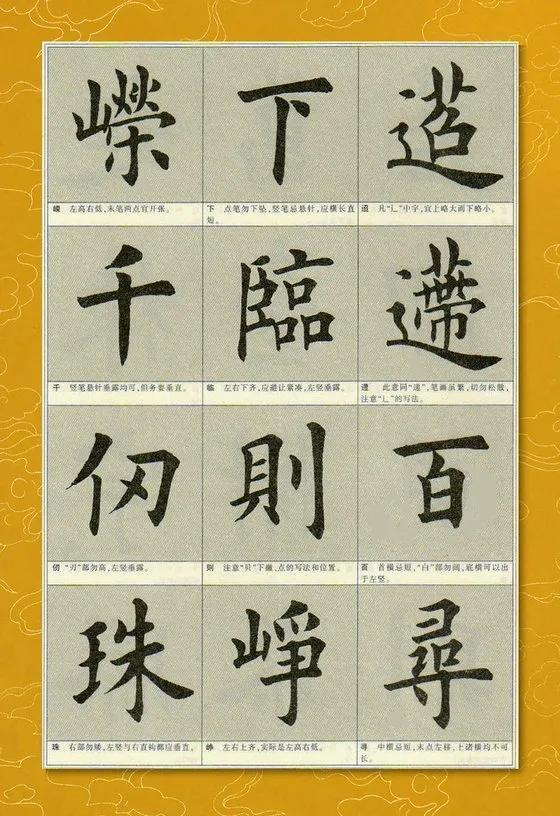 迢
迢 凡“辶”中字,宜上略大而下略小。
遰
遰 此意同“迢”,笔画虽繁,切勿松散,
注意“辶”的写法。
百
百 首横忌短,“白”部勿阔,底横可以出
于左竖。
尋
寻 中横忌短,末点左移,上诸横均不可
长。
下
下 点笔勿下坠,竖笔忌悬针,应横长直
短。
臨
临 左右下齐,应避让紧凑,左竖垂露。
則
则 注意“贝”下撇、点的写法和位置。
崢
峥 左右上齐,实际是左高右低。
嶸
嵘 左高右低,末笔两点宜开张。
千
千 竖笔悬针垂露均可,但务要垂直。
仞
仞 “刃”部勿高,左竖垂露。
珠
珠 右部勿矮,左竖与右直钩都应垂直。